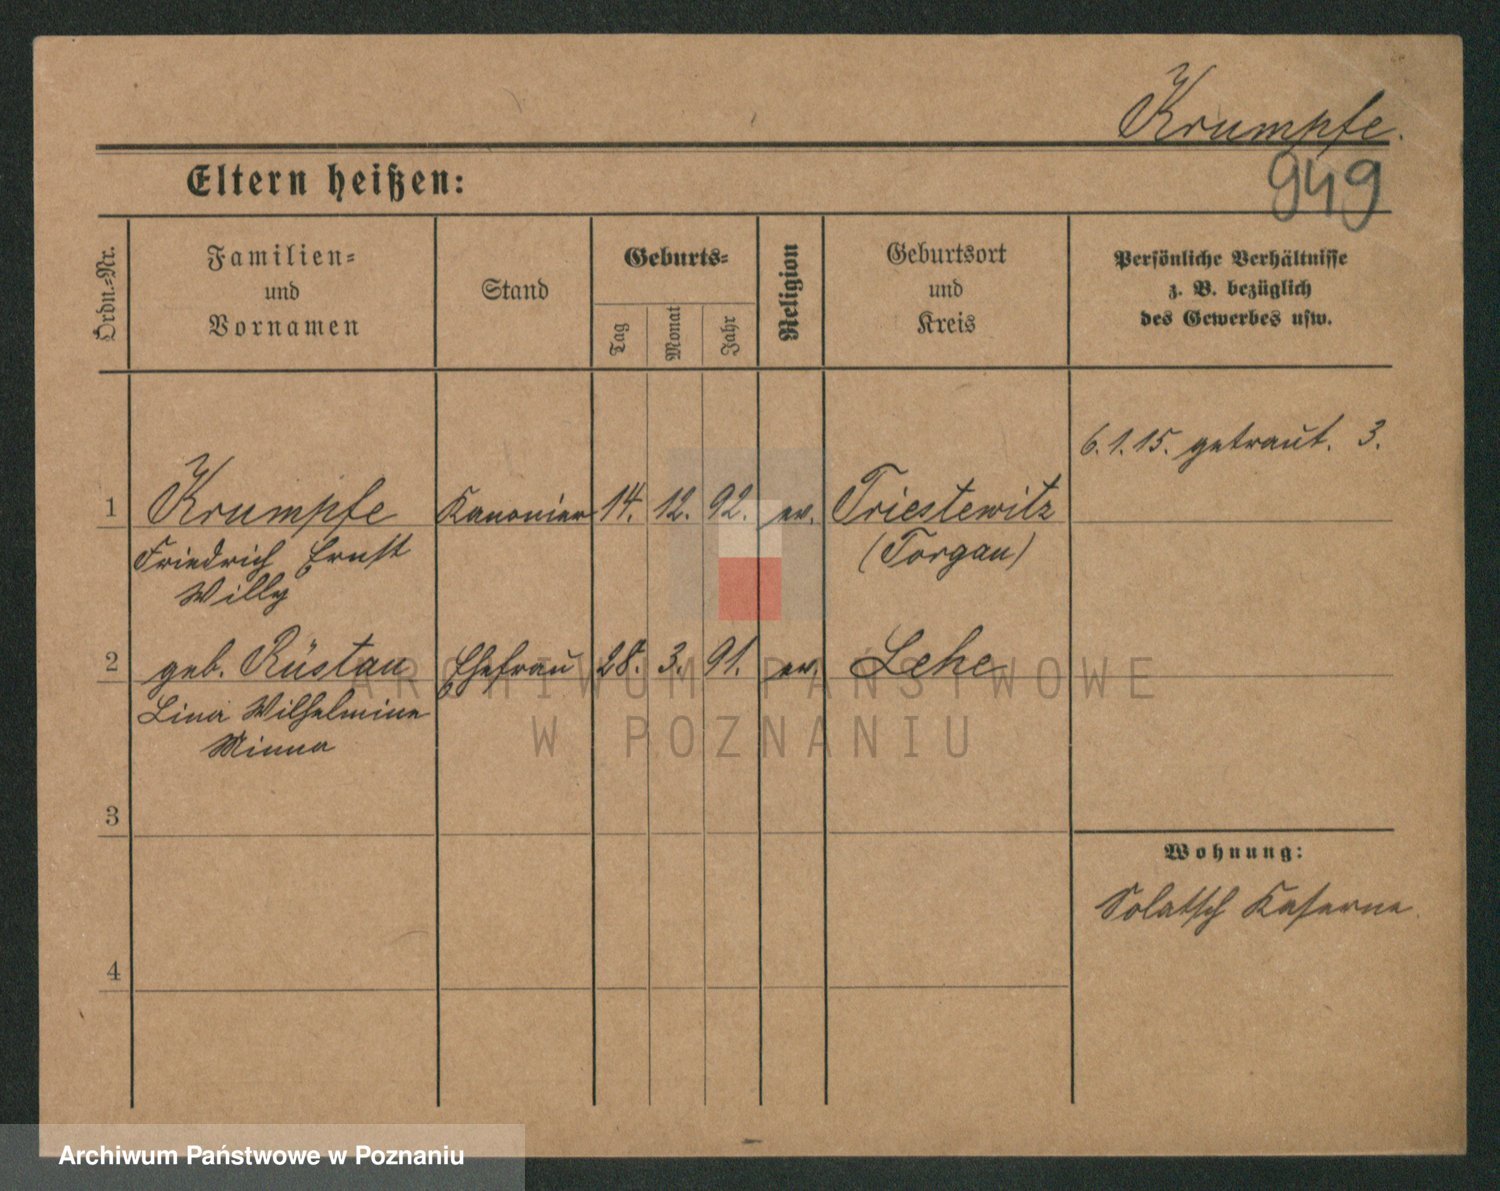 Krumpfe.
949
Eltern heißen:
Ordn.-Nr.
Familien-
und
Vornamen
Stand
Geburts-
Tag
Monat
Jahr
Religion
Geburtsort
und
Kreis
Persönliche Verhältnisse
z. B. bezüglich
des Gewerbes usw.
6.1.15. getraut. 3.
1 Krumpfe Kanonier 14. 12. 92. ev. Triestewitz
Friedrich Ernst (Torgau)
Willy
2 geb. Rüstau Ehefrau 28. 3. 91. ev. Lehe
Lina Wilhelmine
Minna
3
4
Wohnung:
Solatsch Kaserne
ARCHIWUM PAŃSTWOWE
W POZNANIU
Archiwum Państwowe w Poznaniu